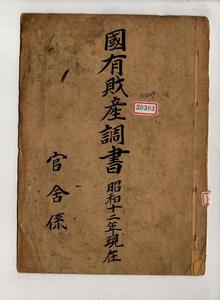 國有財産調書 昭和十二年現在
20303
官舍係